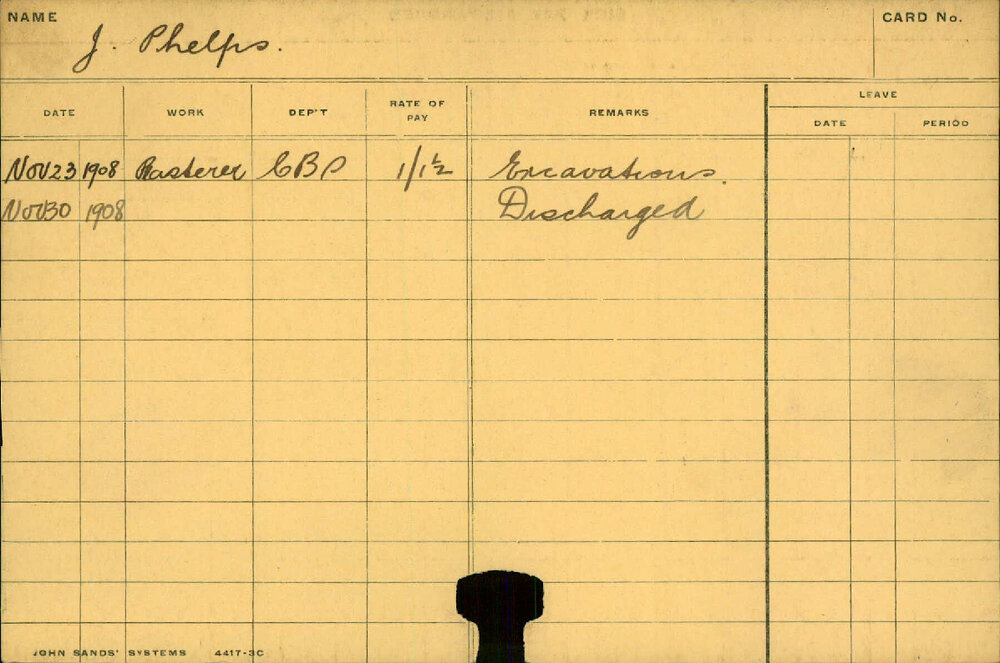 NAME
J. Phelps.
CARD No.
DATE WORK DEP'T RATE OF PAY REMARKS LEAVE
DATE PERIOD
Nov 23 1908 CBP 1/1½ Excavations.
Nov 30 1908 Discharged
JOHN SANDS' SYSTEMS 4417-3C